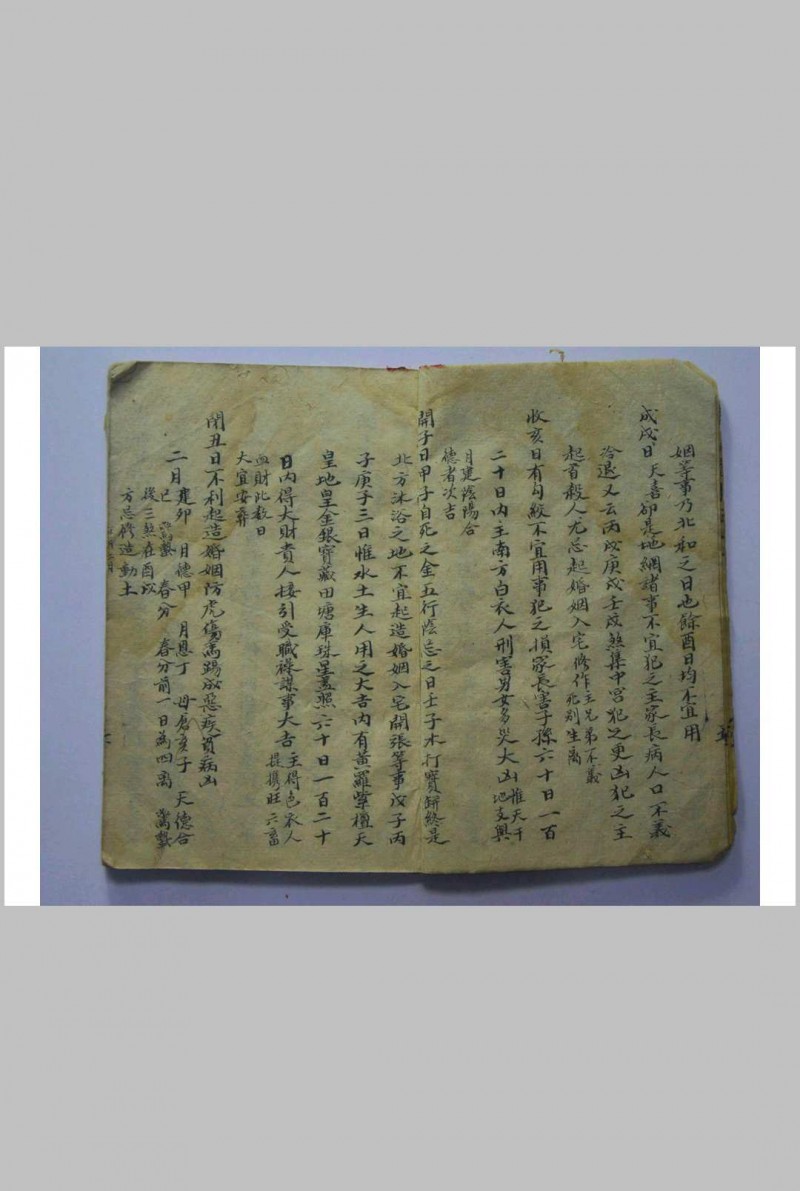 姻等事乃北和之日也餘酉日均不宜用
成戌日天喜卻是地網諸事不宜犯之主家長病人口不義
冷退又云丙戌庚戌壬戌煞集中宮犯之更凶犯之主
起首殺人尤忌起婚姻入宅修作主兄弟不義
死別生离
收亥日有勾絞不宜用事犯之損家長害子孫六十日一百
二十日內主南方白衣人刑害男女多災大凶惟天干
地支與
月建蔭陽合
德者次吉
開子日甲子自死之金五行陰忌之日壬子木打寶缾終是
北方沐浴之地不宜起造婚姻入宅開張等事戊子丙
子庚子三日惟水土生人用之大吉內有黃羅紫檀天
皇地皇金銀寶藏田塘庫珠星蓋照六十日一百二十
日內得大財貴人接引受職祿謀事大吉主得色衣人
提携旺六畜
血財此數日
大宜安葬
閉丑日不利起造婚姻防虎傷馬踢成惡疾貧病凶
二月建卯 月德甲 月恩丁 母倉亥子 天德合
巳 春分 春分前一日為四离 驚蟄
後三煞在酉戌
方忌修造動土